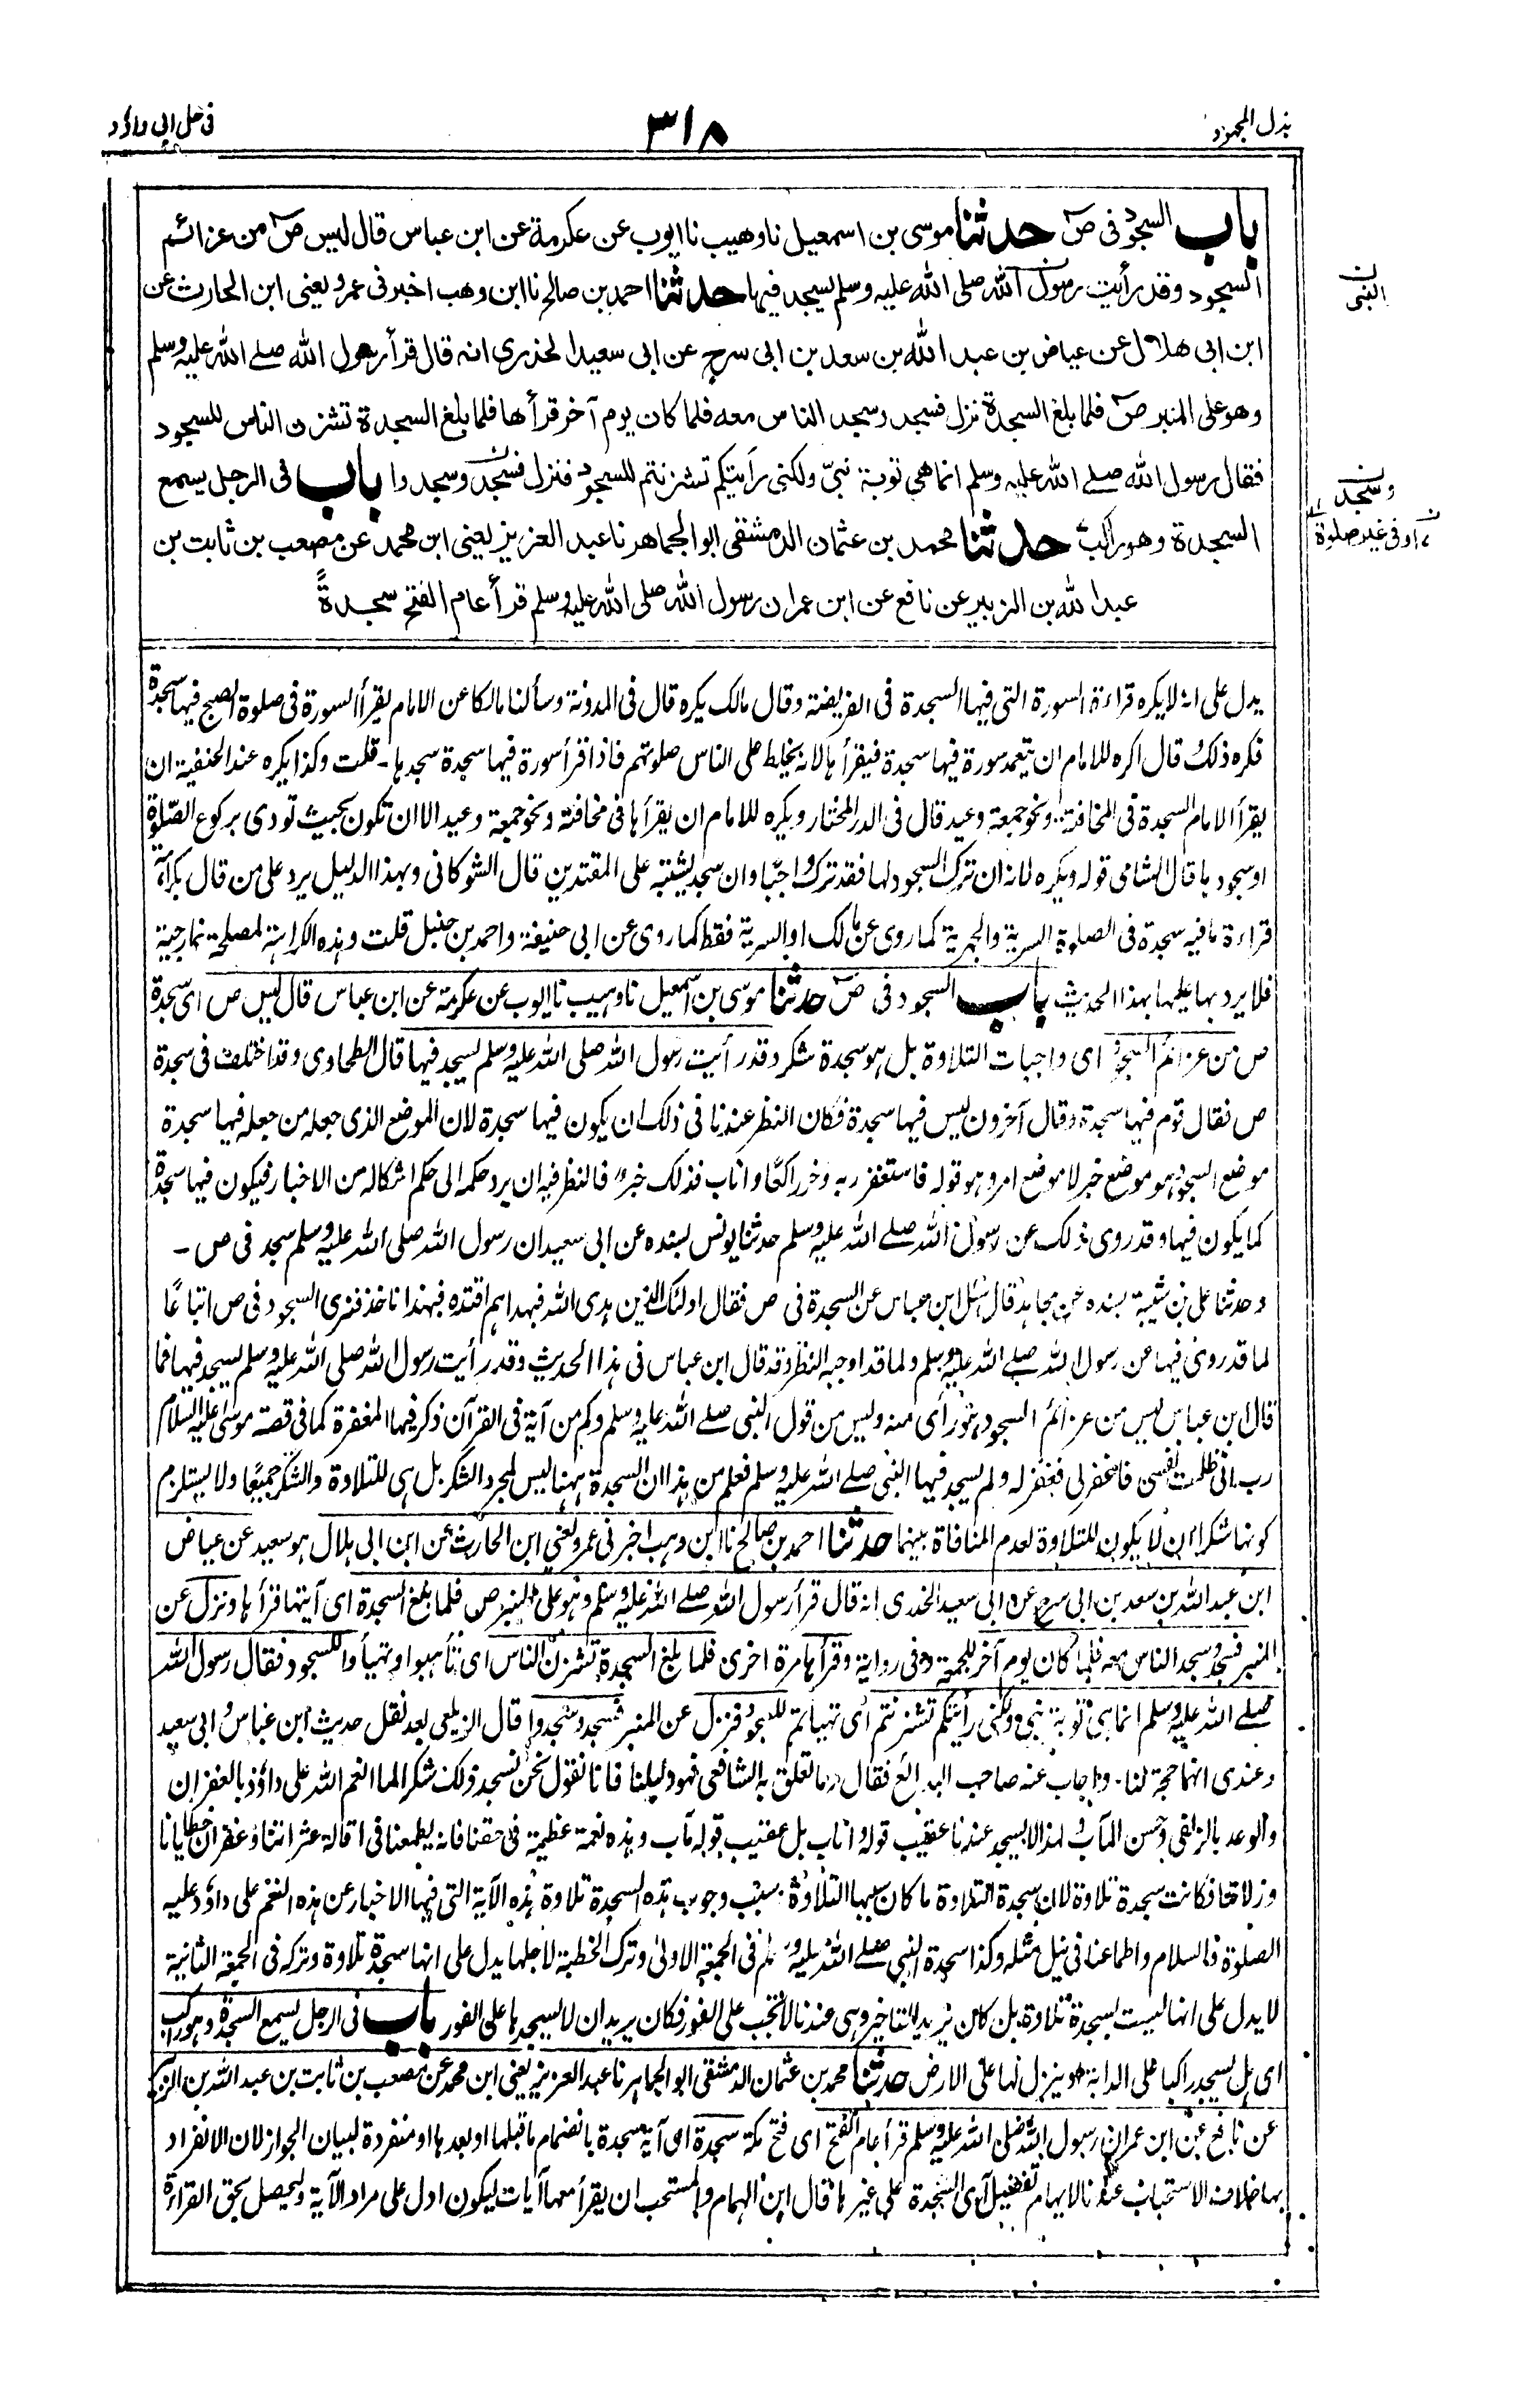 بذل المجهود
٣١٨
فى حل ابى داؤد
باب السجود فى صٓ حدثنا موسى بن اسمعيل نا وهيب نا ايوب عن عكرمة عن ابن عباس قال ليس صٓ من عزائم
السجود وقد رأيت رسول الله صلى الله عليه وسلم يسجد فيها حدثنا احمد بن صالح نا ابن وهب اخبرنى عمرو يعنى ابن الحارث عن
ابن ابى هلال عن عياض بن عبد الله بن سعد بن ابى سرح عن ابى سعيد الخدرى انه قال قرأ رسول الله صلے الله عليه وسلم
وهو على المنبر صٓ فلما بلغ السجدة نزل فسجد وسجد الناس معه فلما كان يوم آخر قرأها فلما بلغ السجدة تشزن الناس للسجود
فقال رسول الله صلے الله عليه وسلم انما هى توبة نبىّ ولكنى رأيتكم تشزنتم للسجود فنزل فسجد وسجدوا باب فى الرجل يسمع
السجدة وهو راكب حدثنا محمد بن عثمان الدمشقى ابو الجماهر نا عبد العزيز يعنى ابن محمد عن مصعب بن ثابت بن
عبد الله بن الزبير عن نافع عن ابن عمر ان رسول الله صلى الله عليه وسلم قرأ عام الفتح سجدةً
ن النبى
ن وسجد
ن او فى غير صلوة
يدل على انه لا يكره قراءة السورة التى فيها السجدة فى الفريضة وقال مالك يكره قال فى المدونة وسألنا مالكا عن الامام يقرأ السورة فى صلوة الصبح فيها سجدة
فكره ذلك قال اكره للامام ان يتعمد سورة فيها سجدة فيقرأها لانه يخلط على الناس صلوتهم فاذا قرأ سورة فيها سجدة سجدها - قلت وكذا يكره عند الحنفية ان
يقرأ الامام السجدة فى المخافتة ونحو جمعة وعيد قال فى الدر المختار ويكره للامام ان يقرأها فى مخافتة ونحو جمعة وعيد الا ان تكون بحيث تودى بركوع الصلوة
او سجودها قال الشامى قوله ويكره لانه ان ترك السجود لها فقد ترك واجبًا وان سجد يشتبه على المقتدين قال الشوكانى وبهذا الدليل يرد على من قال بكراهة
قراءة ما فيه سجدة فى الصلوة السرية والجهرية كما روى عن مالك او السرية فقط كما روى عن ابى حنيفة واحمد بن حنبل قلت وهذه الكراهة لمصلحة خارجية
فلا يرد بها عليها بهذا الحديث باب السجود فى صٓ حدثنا موسى بن اسمعيل نا وهيب نا ايوب عن عكرمة عن ابن عباس قال ليس ص اى سجدة
ص من عزائم السجود اى واجبات التلاوة بل هو سجدة شكر وقد رأيت رسول الله صلى الله عليه وسلم يسجد فيها قال الطحاوى وقد اختلف فى سجدة
ص فقال قوم فيها سجدة وقال آخرون ليس فيها سجدة فكان النظر عندنا فى ذلك ان يكون فيها سجدة لان الموضع الذى جعله من جعله فيها سجدة
موضع السجود هو موضع خبر لا موضع امر وهو قوله فاستغفر ربه وخر راكعًا واناب فذلك خبر فالنظر فيه ان يرد حكمه الى حكم اشكاله من الاخبار فيكون فيها سجدة
كما يكون فيها وقد روى ذلك عن رسول الله صلے الله عليه وسلم حدثنا يونس بسنده عن ابى سعيد ان رسول الله صلى الله عليه وسلم سجد فى ص -
وحدثنا على بن شيبة بسنده عن مجاهد قال سئل ابن عباس عن السجدة فى ص فقال اولئك الذين هدى الله فبهداهم اقتده فبهذا ناخذ فنرى السجود فى ص اتباعًا
لما قد روى فيها عن رسول الله صلے الله عليه وسلم ولما قد اوجبه النظر وقد قال ابن عباس فى هذا الحديث وقد رأيت رسول الله صلى الله عليه وسلم يسجد فيها فما
قال ابن عباس ليس من عزائم السجود هو رأى منه وليس من قول النبى صلے الله عليه وسلم وكم من آية فى القرآن ذكر فيها المغفرة كما فى قصة موسى عليه السلام
رب انى ظلمت نفسى فاغفر لى فغفر له ولم يسجد فيها النبى صلے الله عليه وسلم فعلم من هذا ان السجدة ههنا ليس لمجرد الشكر بل هى للتلاوة والشكر جميعًا ولا يستلزم
كونها شكرا ان لا يكون للتلاوة لعدم المنافاة بينهما حدثنا احمد بن صالح نا ابن وهب اخبرنى عمرو يعنى ابن الحارث عن ابن ابى هلال هو سعيد عن عياض
ابن عبد الله بن سعد بن ابى سرح عن ابى سعيد الخدرى انه قال قرأ رسول الله صلے الله عليه وسلم وهو على المنبر ص فلما بلغ السجدة اى آيتها قرأها ونزل عن
المنبر فسجد وسجد الناس معه فلما كان يوم آخر للجمعة وفى رواية وقرأها مرة اخرى فلما بلغ السجدة تشزن الناس اى تأهبوا وتهيأوا للسجود فقال رسول الله
صلے الله عليه وسلم انما هى توبة نبى ولكنى رأيتكم تشزنتم اى تهيأتم للسجود فنزل عن المنبر فسجد وسجدوا قال الزيلعى بعد نقل حديث ابن عباس وابى سعيد
وعندى انهما حجة لنا - واجاب عنه صاحب البدائع فقال وما تعلق به الشافعى فهو دليلنا فانا نقول نحن نسجد ذلك شكرا لما انعم الله على داؤد بالغفران
والوعد بالزلفى وحسن المآب ولهذا لا يسجد عندنا عقيب قوله واناب بل عقيب قوله مآب وهذه نعمة عظيمة فى حقنا فانه يطمعنا فى اقالة عثراتنا وغفران خطايانا
وزلاتنا فكانت سجدة تلاوة لان سجدة التلاوة ما كان سببها التلاوة وسبب وجوب هذه السجدة تلاوة هذه الآية التى فيها الاخبار عن هذه النعم على داؤد عليه
الصلوة والسلام واطماعنا فى نيل مثله وكذا سجدة النبى صلے الله عليه وسلم فى الجمعة الاولى وترك الخطبة لاجلها يدل على انها سجدة تلاوة وتركه فى الجمعة الثانية
لا يدل على انها ليست بسجدة تلاوة بل كان يريد التاخير وهى عندنا لا تجب على الفور فكان يريد ان لا يسجدها على الفور باب فى الرجل يسمع السجدة وهو راكب
اى هل يسجد راكبا على الدابة او ينزل لها على الارض حدثنا محمد بن عثمان الدمشقى ابو الجماهر نا عبد العزيز يعنى ابن محمد عن مصعب بن ثابت بن عبد الله بن الزبير
عن نافع عن ابن عمر ان رسول الله صلى الله عليه وسلم قرأ عام الفتح اى فتح مكة سجدة اى آية سجدة بانضمام ما قبلها او بعدها او منفردة لبيان الجواز لان الانفراد
بها خلاف الاستحباب عندنا لايهام تفضيل آى السجدة على غيرها قال ابن الهمام والمستحب ان يقرأ معها آيات ليكون ادل على مراد الآية وليحصل بحق القراءة